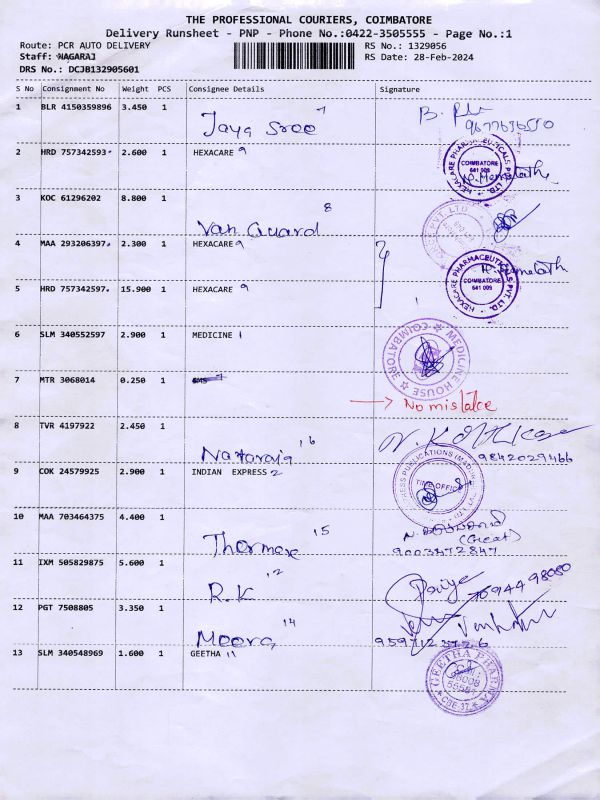 THE PROFESSIONAL COURIERS, COIMBATORE
Delivery Runsheet - PNP - Phone No.:0422-3505555 - Page No.:1
Route: PCR AUTO DELIVERY
RS No.: 1329056
Staff: NAGARAJ
RS Date: 28-Feb-2024
DRS No.: DCJB132905601
S No Consignment No Weight PCS Consignee Details Signature
1 BLR 4150359896 3.450 1 Jaya Sree 7
2 HRD 757342593 2.600 1 HEXACARE 9
HEXACARE PHARMACEUTICALS PVT. LTD.
COIMBATORE
641 009
3 KOC 61296202 8.800 1 Van Guard 8
4 MAA 293206397 2.300 1 HEXACARE 9
5 HRD 757342597 15.900 1 HEXACARE 9
HEXACARE PHARMACEUTICALS PVT. LTD.
COIMBATORE
641 009
6 SLM 340552597 2.900 1 MEDICINE 1
MEDICINE HOUSE COIMBATORE
7 MTR 3068014 0.250 1
No mistake
8 TVR 4197922 2.450 1 Nataraja 16
9842029466
9 COK 24579925 2.900 1 INDIAN EXPRESS 2
TIME OFFICE
10 MAA 703464375 4.400 1 Thermax 15
9003472847
11 IXM 505829875 5.600 1 R.K 12
7094498080
12 PGT 7508805 3.350 1 Meera 14
13 SLM 340548969 1.600 1 GEETHA 11
GEETHA PHARMA
CBE-37